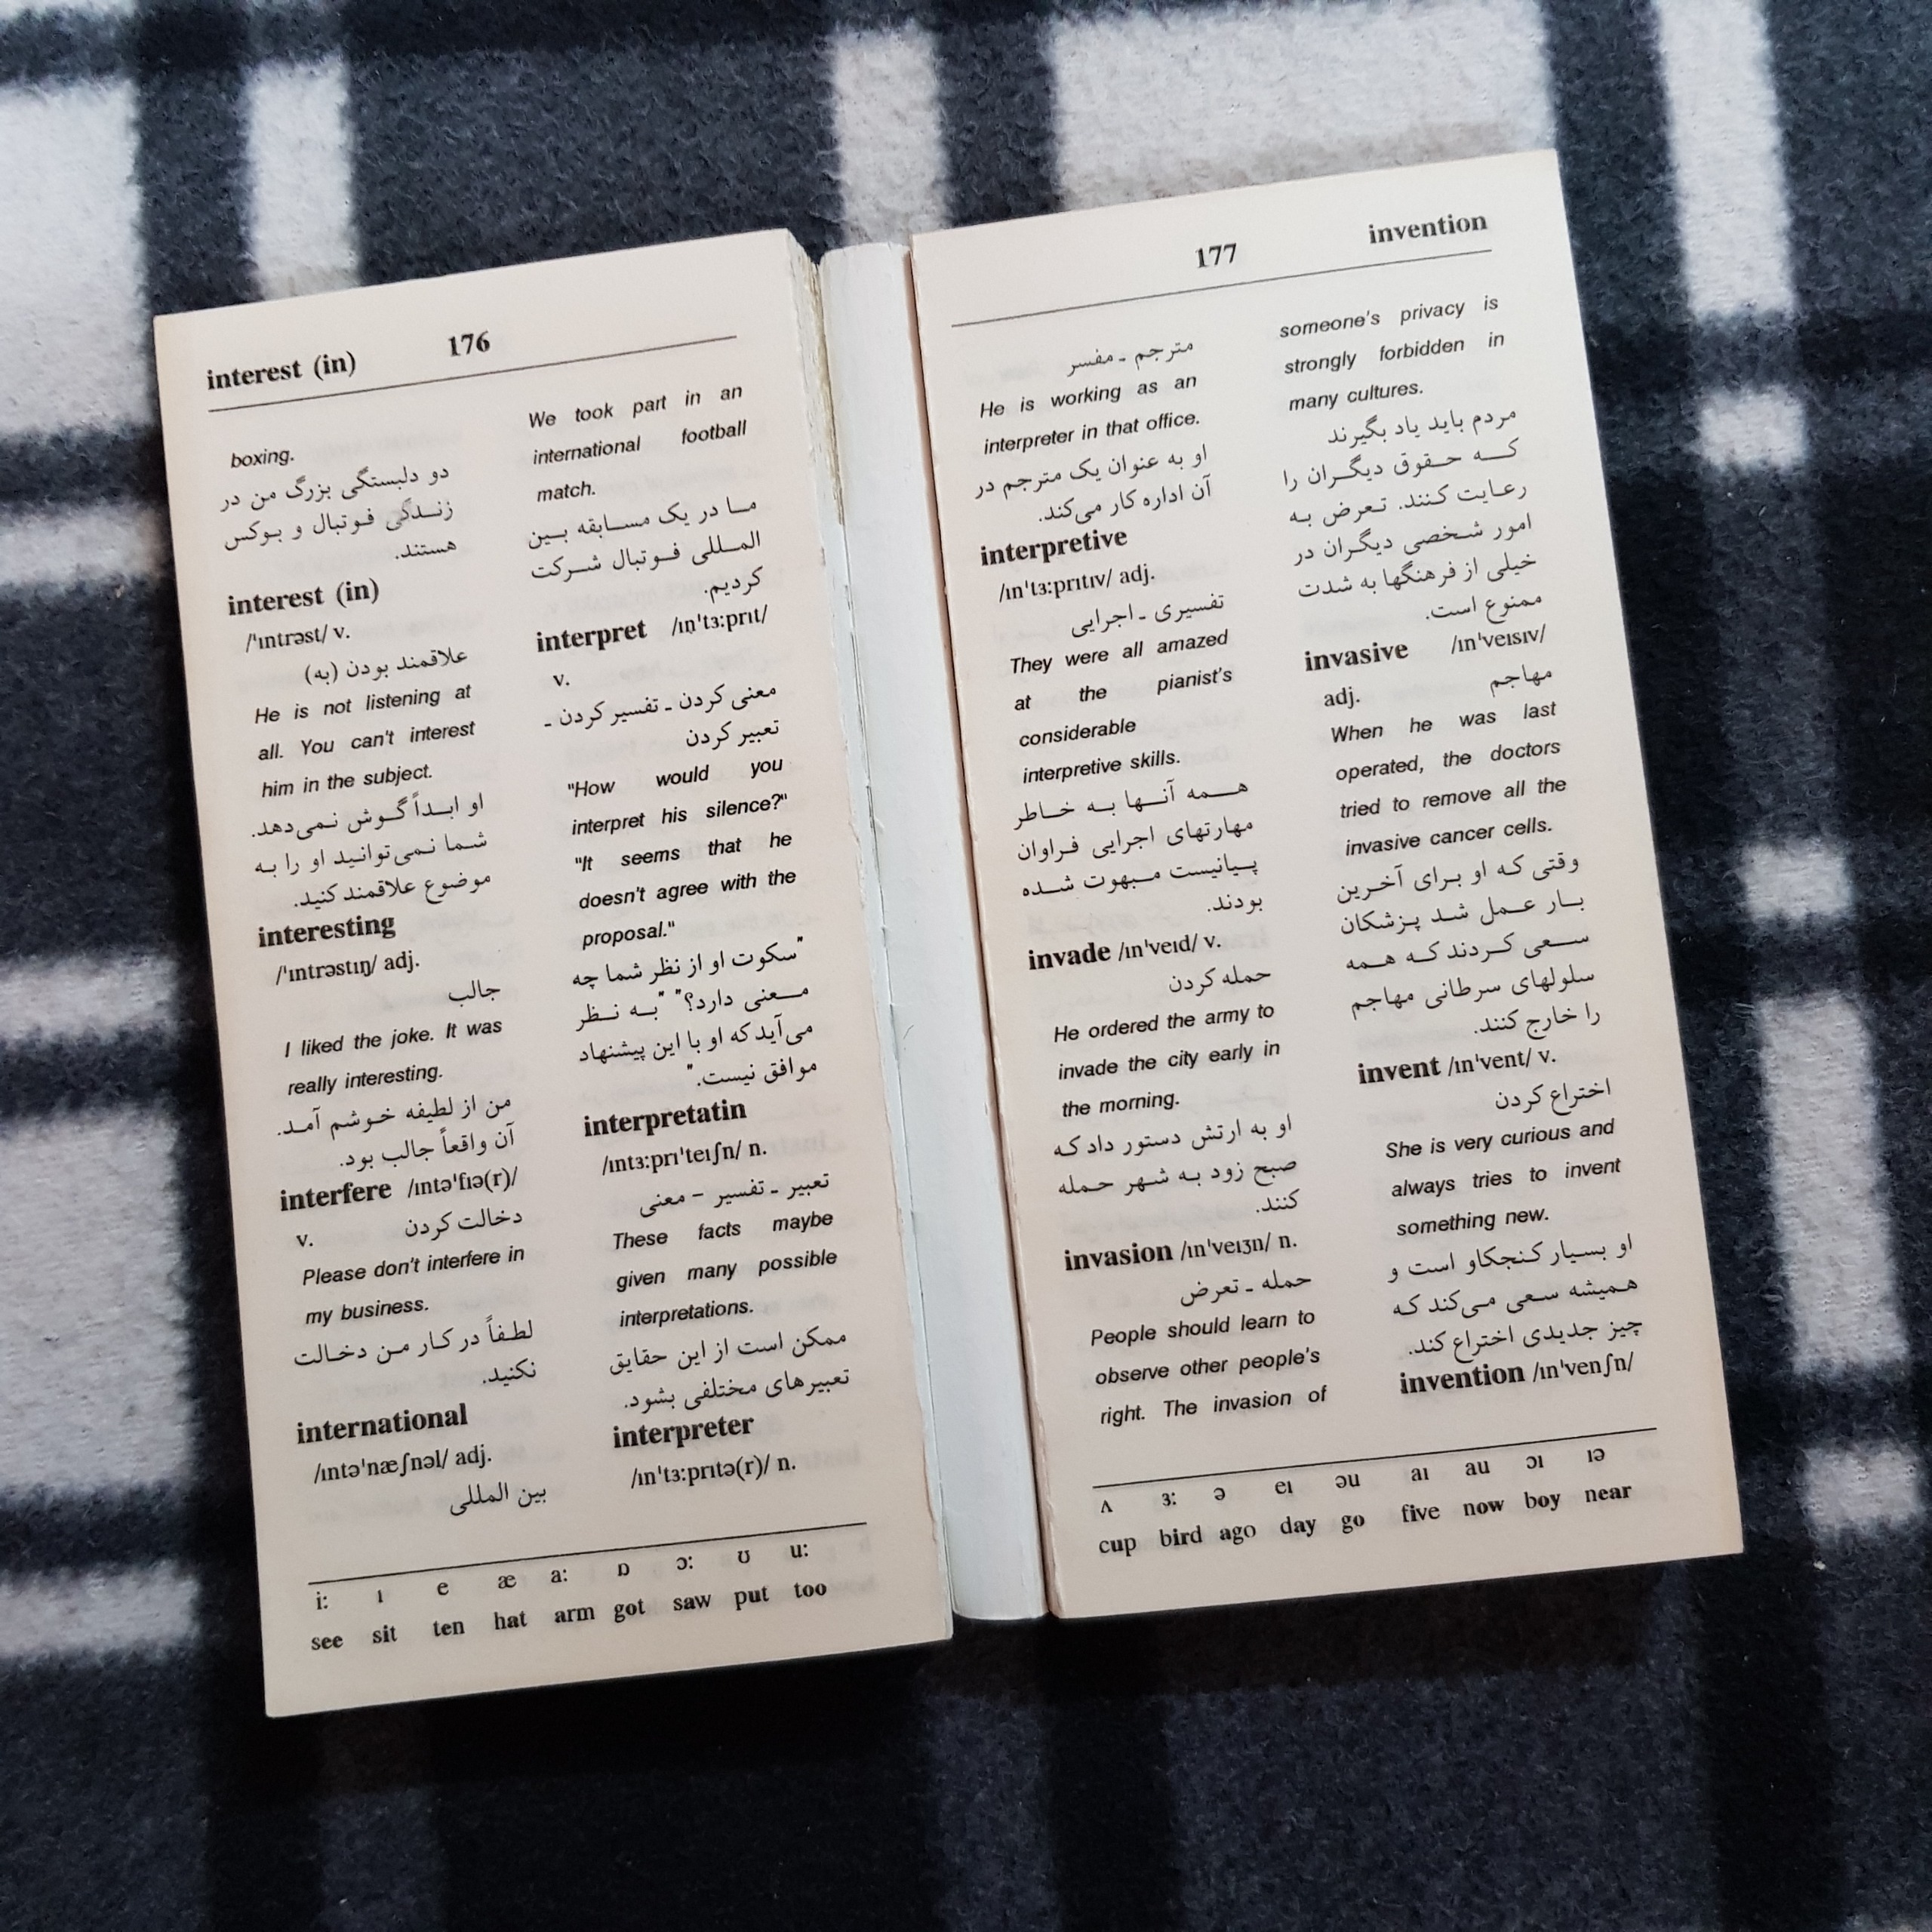 interest (in)
176
boxing.
دو دلبستگی بزرگ من در
زنـدگی فـوتبال و بـوکس
هستند.
interest (in)
/ˈɪntrəst/ v.
علاقمند بودن (به)
He is not listening at
all. You can't interest
him in the subject.
او ابـداً گـوش نـمی‌دهد.
شـما نـمی‌توانـید او را بـه
موضوع علاقمند کنید.
interesting
/ˈɪntrəstɪŋ/ adj.
جالب
I liked the joke. It was
really interesting.
من از لطیفه خـوشم آمـد.
آن واقعاً جالب بود.
interfere /ɪntəˈfɪə(r)/
v. دخالت کردن
Please don't interfere in
my business.
لطـفاً در کـار مـن دخـالت
نکنید.
international
/ɪntəˈnæʃnəl/ adj.
بین المللی
We took part in an
international football
match.
مـا در یک مسـابقه بـین
المـللی فـوتبال شـرکت
کردیم.
interpret /ɪnˈtɜ:prɪt/
v.
معنی کردن ـ تفسیر کردن ـ
تعبیر کردن
"How would you
interpret his silence?"
"It seems that he
doesn't agree with the
proposal."
"سکوت او از نظر شما چه
مـعنی دارد؟" "بـه نـظر
می‌آید که او با این پیشنهاد
موافق نیست."
interpretatin
/ɪntɜ:prɪˈteɪʃn/ n.
تعبیر ـ تفسیر – معنی
These facts maybe
given many possible
interpretations.
ممکن است از این حقایق
تعبیرهای مختلفی بشود.
interpreter
/ɪnˈtɜ:prɪtə(r)/ n.
i: ɪ e æ a: ɒ ɔ: ʊ u:
see sit ten hat arm got saw put too
177
invention
مترجم ـ مفسر
He is working as an
interpreter in that office.
او به عنوان یک مترجم در
آن اداره کار می‌کند.
interpretive
/ɪnˈtɜ:prɪtɪv/ adj.
تفسیری ـ اجرایی
They were all amazed
at the pianist's
considerable
interpretive skills.
هـمه آنـها بـه خـاطر
مهارتهای اجرایی فـراوان
پـیانیست مـبهوت شـده
بودند.
invade /ɪnˈveɪd/ v.
حمله کردن
He ordered the army to
invade the city early in
the morning.
او به ارتش دستور داد کـه
صبح زود بـه شـهر حـمله
کنند.
invasion /ɪnˈveɪʒn/ n.
حمله ـ تعرض
People should learn to
observe other people's
right. The invasion of
someone's privacy is
strongly forbidden in
many cultures.
مردم باید یاد بگیرند
کـه حـقوق دیگـران را
رعـایت کـنند. تـعرض بـه
امور شـخصی دیگـران در
خیلی از فرهنگها به شدت
ممنوع است.
invasive /ɪnˈveɪsɪv/
adj. مهاجم
When he was last
operated, the doctors
tried to remove all the
invasive cancer cells.
وقتی کـه او بـرای آخـرین
بـار عـمل شـد پـزشکان
سـعی کـردند کـه هـمه
سلولهای سرطانی مهاجم
را خارج کنند.
invent /ɪnˈvent/ v.
اختراع کردن
She is very curious and
always tries to invent
something new.
او بسـیار کـنجکاو است و
هـمیشه سـعی مـی‌کند کـه
چیز جدیدی اختراع کند.
invention /ɪnˈvenʃn/
ʌ ɜ: ə eɪ əu aɪ au ɔɪ ɪə
cup bird ago day go five now boy near